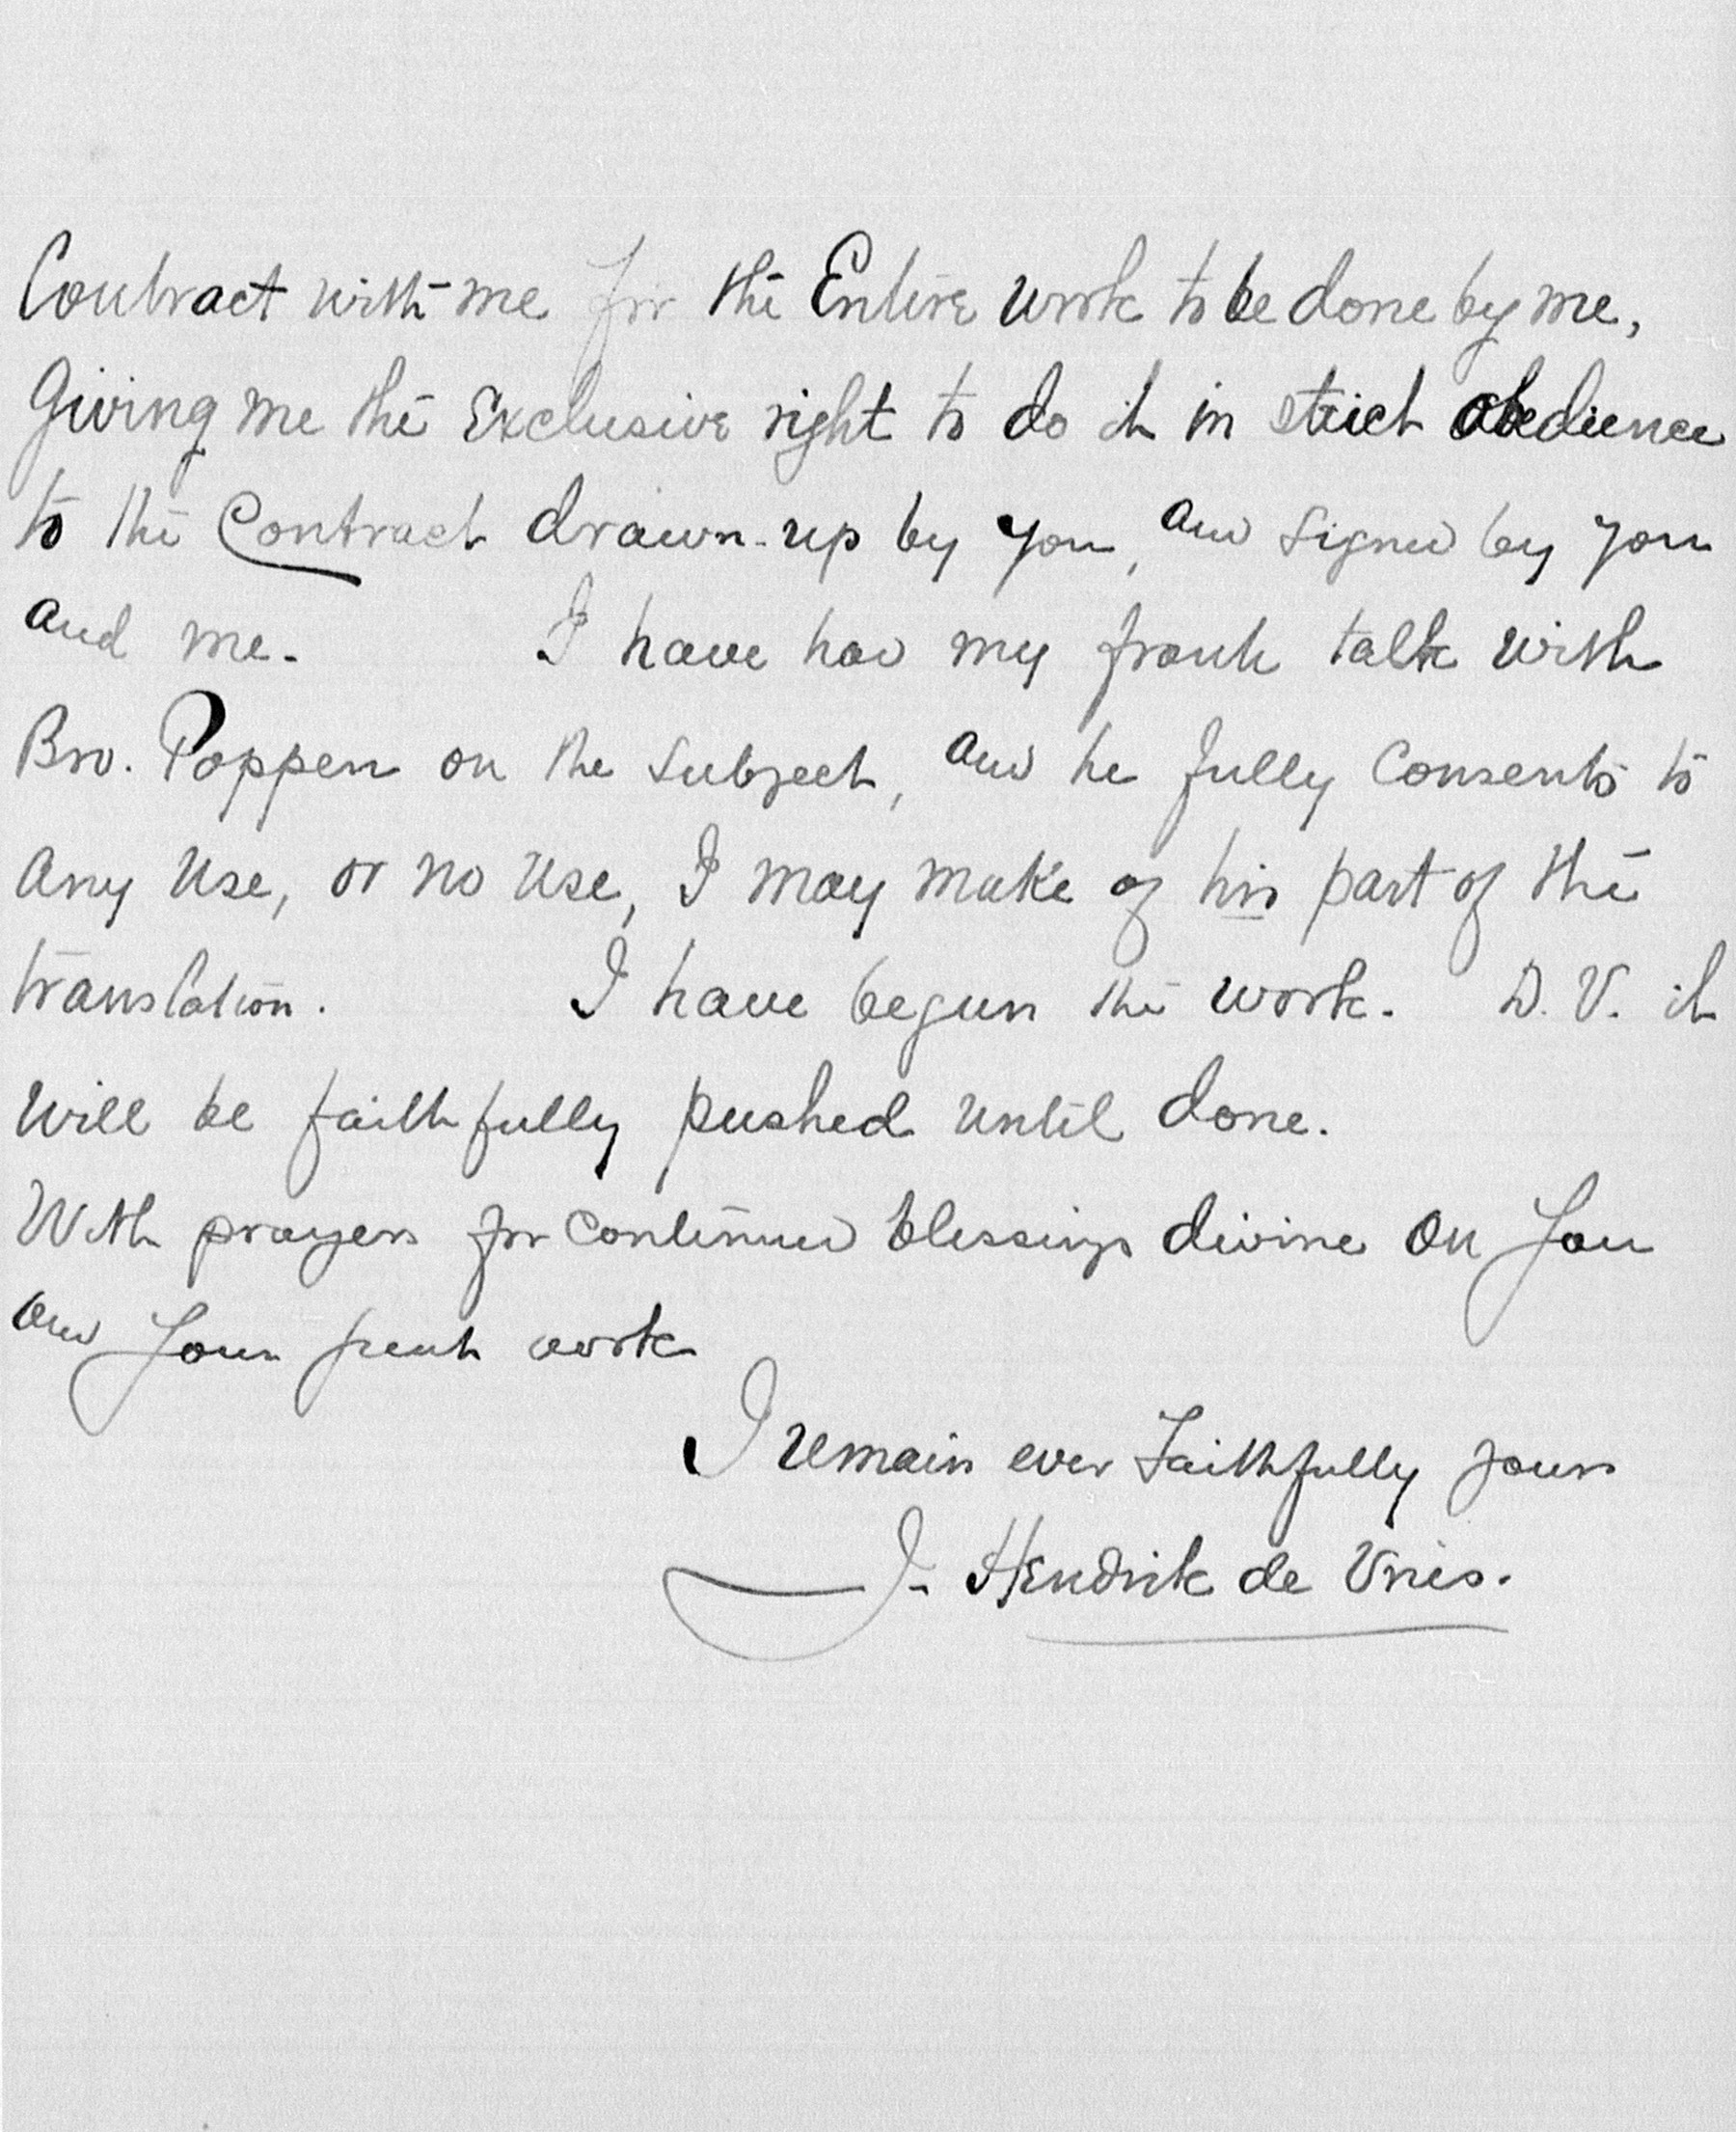 Contract with me for the Entire work to be done by me,
Giving me the Exclusive right to do it in strict obedience
to the Contract drawn-up by you, and signed by you
and me. I have had my frank talk with
Bro. Poppen on the subject, and he fully Consents to
any use, or no use, I may make of his part of the
translation. I have begun the work. D.V. it
will be faithfully pushed until done.
With prayers for continued blessings divine on you
and your great work
I remain ever faithfully yours
J. Hendrik de Vries.